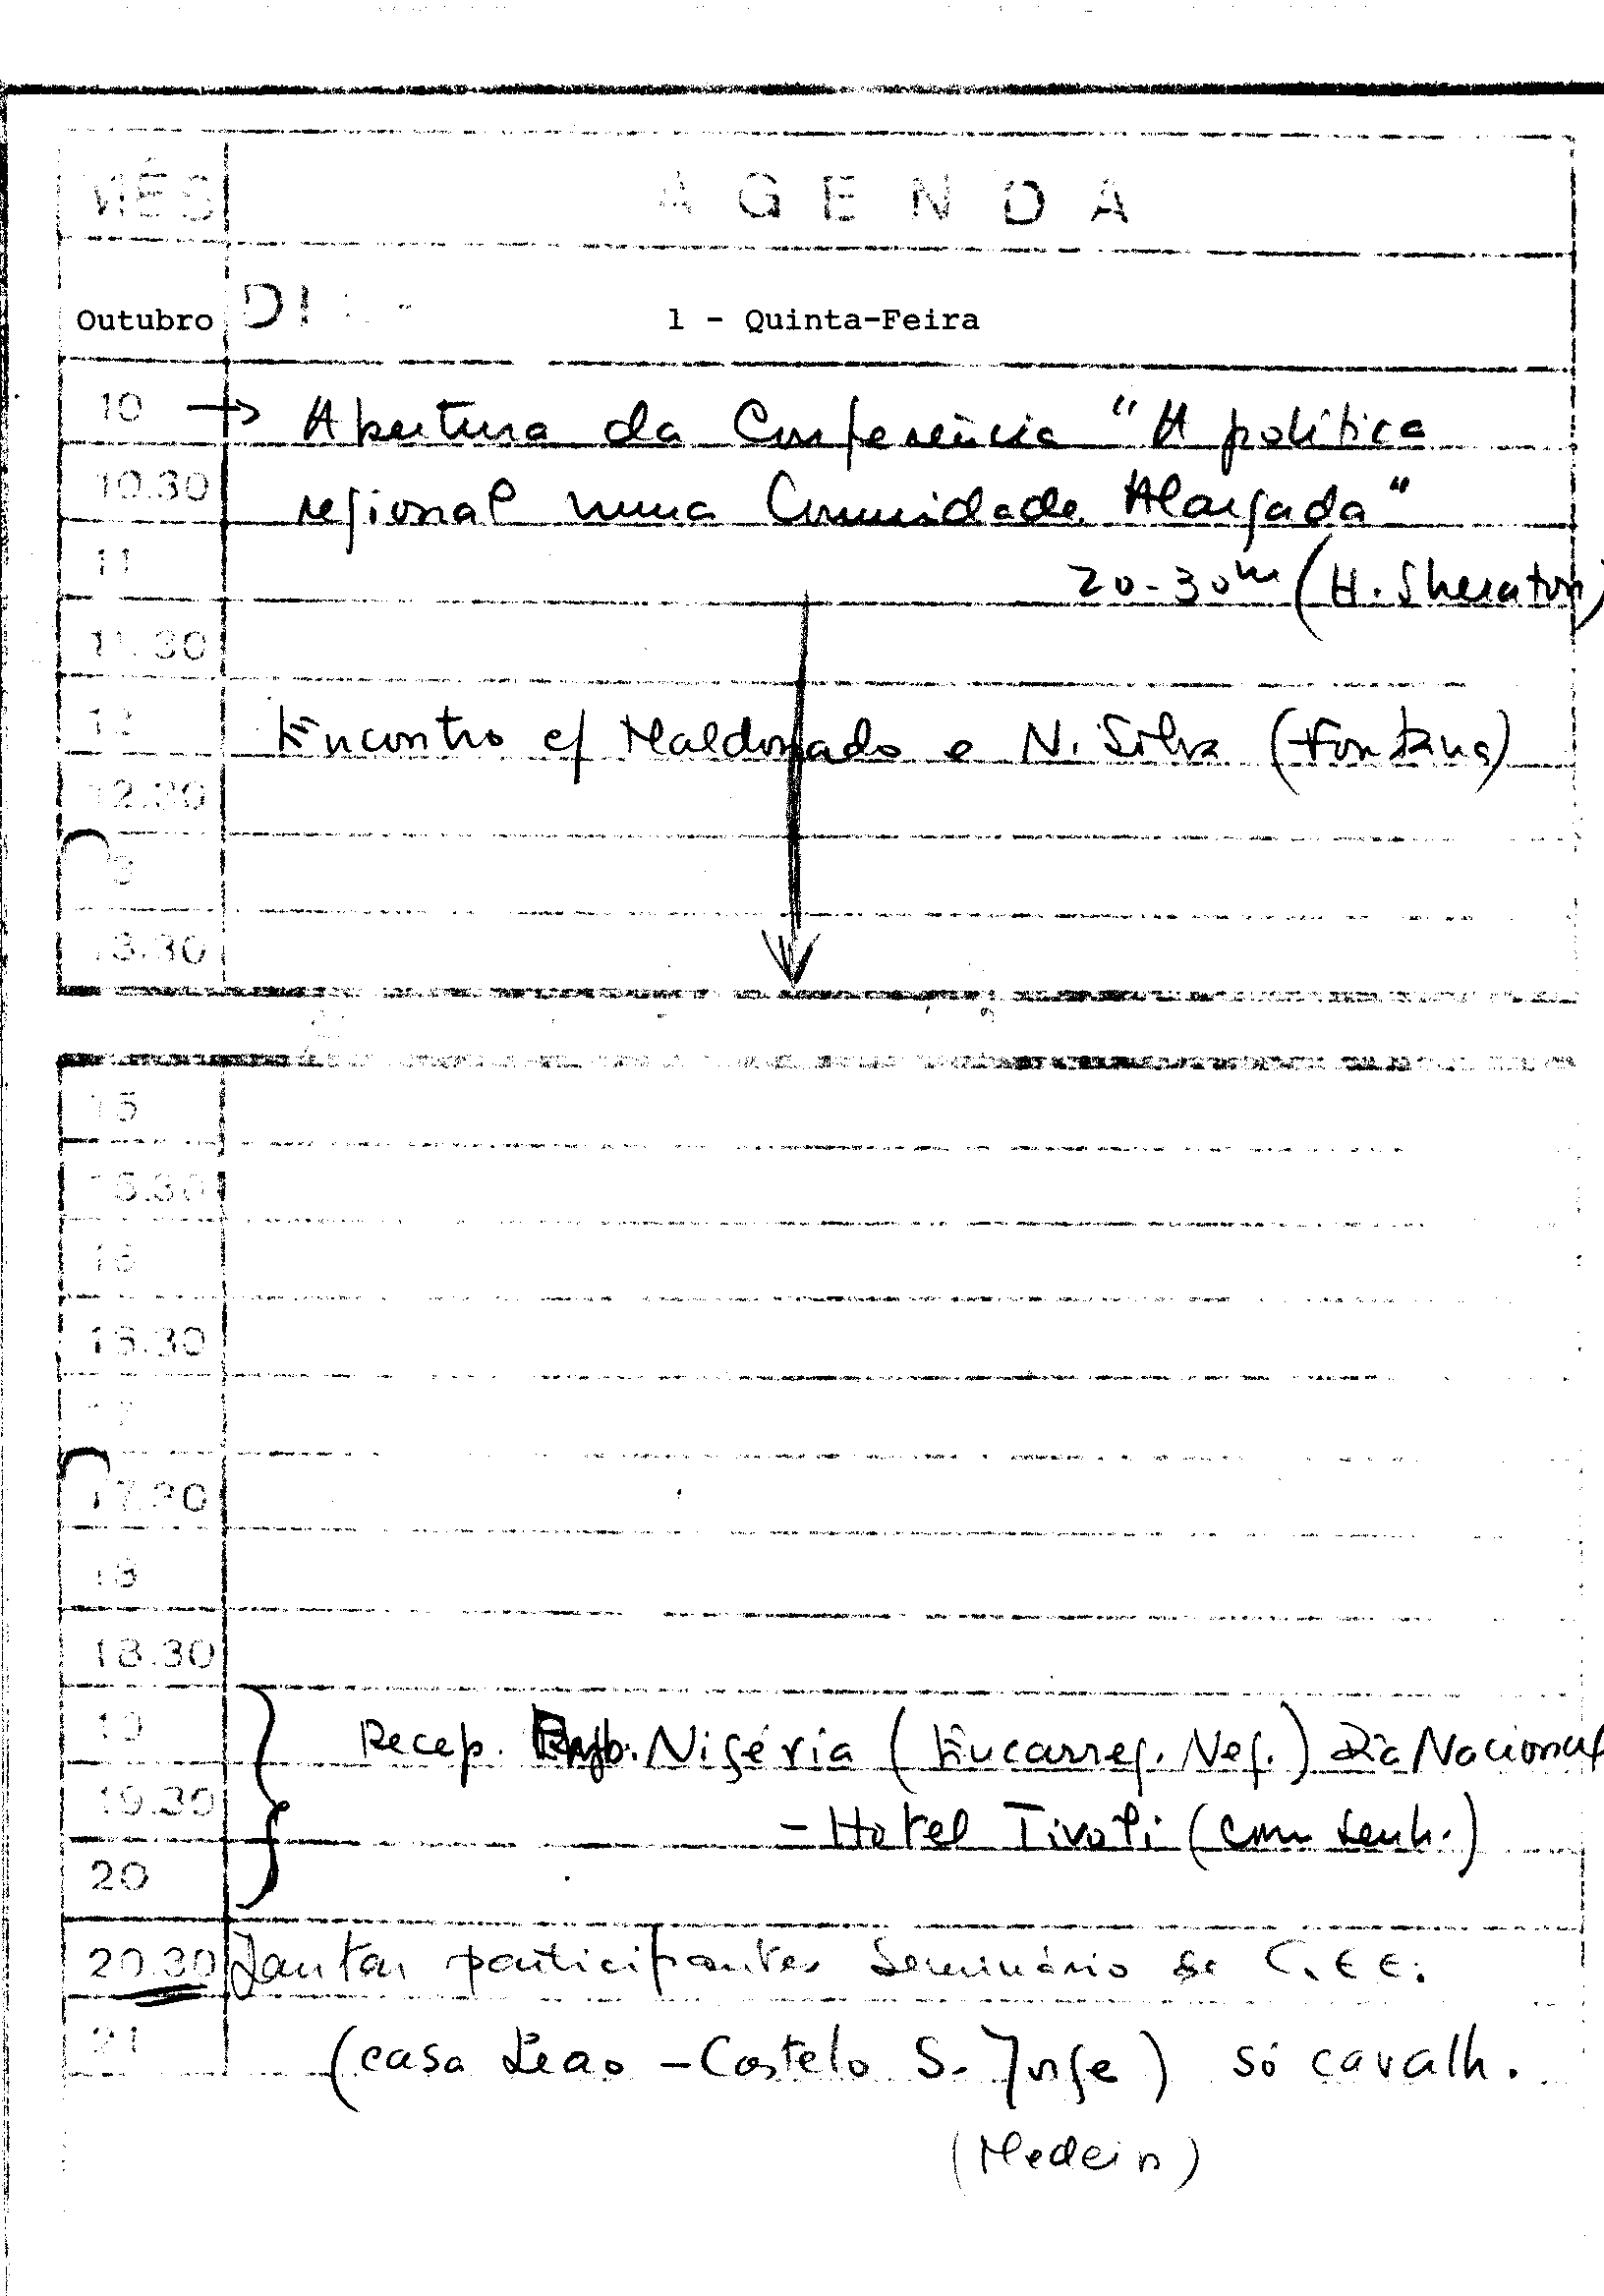 MÊS AGENDA
Outubro DI 1 - Quinta-Feira
10 → Abertura da Conferência "A política
10.30 regional numa Comunidade Alargada"
11 20-30m (H. Sheraton)
11.30
12 Encontro c/ Maldonado e N. Silva (Fontana)
12.30
13
13.30
15
15.30
16
16.30
17
17.30
18
18.30
19 Recep. Emb. Nigéria (Encarreg. Neg.) Dia Nacional
19.30 - Hotel Tivoli (com senh.)
20
20.30 Jantar participantes Seminário de C.E.E.
21 (casa Leão - Castelo S. Jorge) só cavalh.